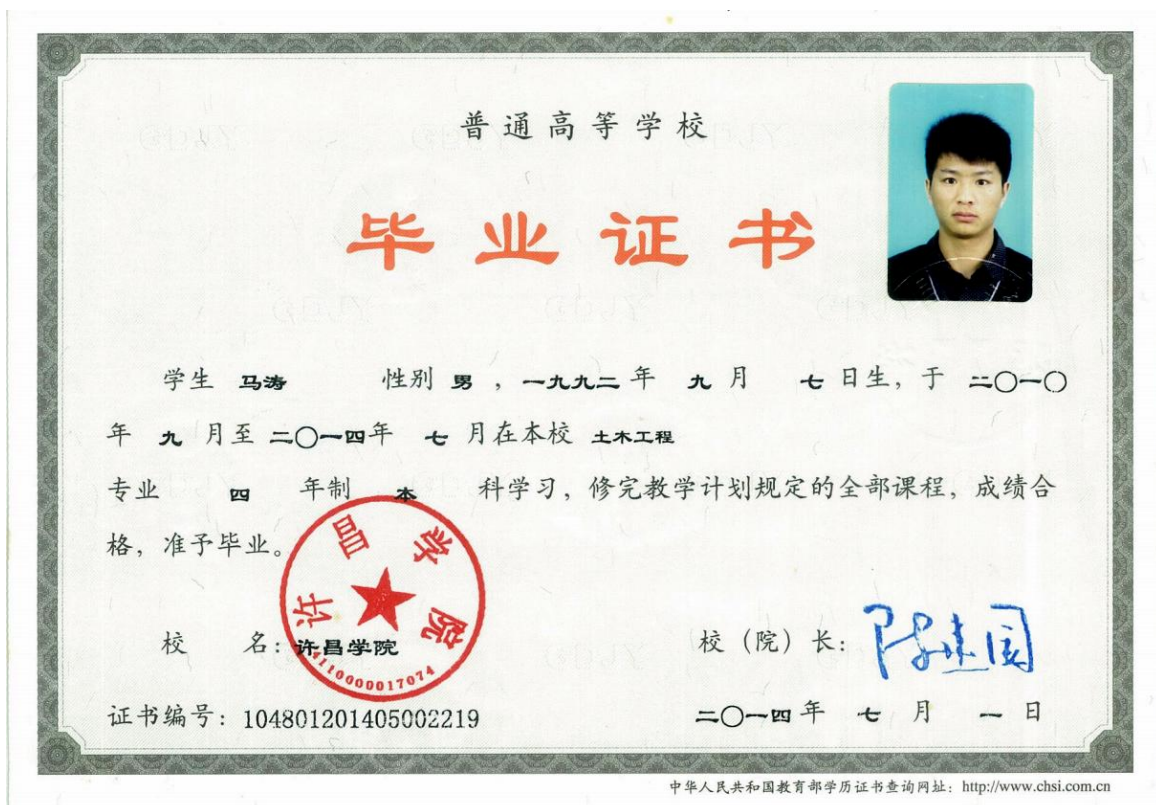 普通高等学校
毕业证书
学生 马涛 性别 男 ，一九九二 年 九 月 七 日生，于 二〇一〇
年 九 月至 二〇一四年 七 月在本校 土木工程
专业 四 年制 本 科学习，修完教学计划规定的全部课程，成绩合
格，准予毕业。
许昌学院
4110000017074
校 名：许昌学院
校（院）长：
证书编号：104801201405002219
二〇一四 年 七 月 一 日
中华人民共和国教育部学历证书查询网址：http://www.chsi.com.cn